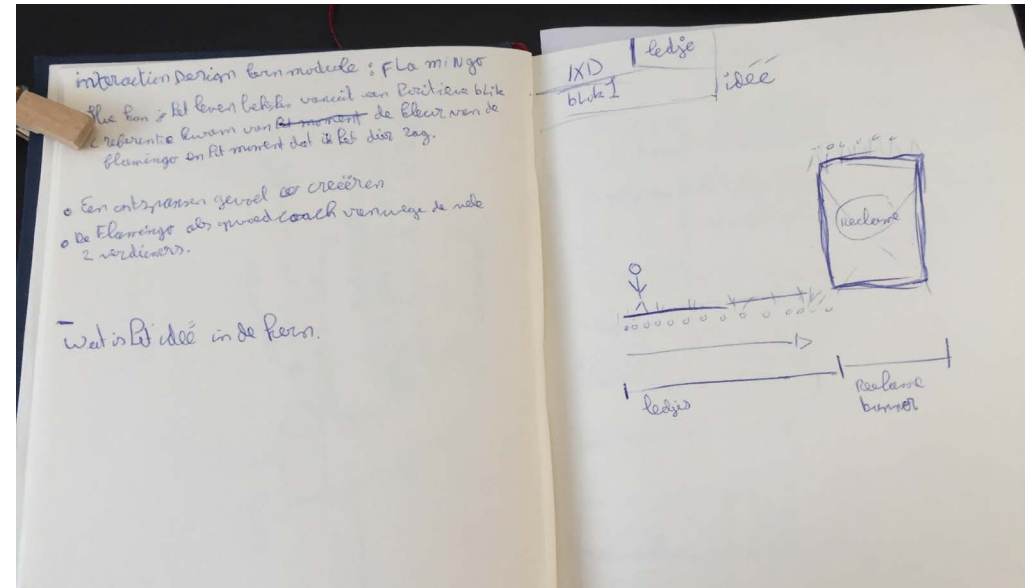 interaction Design kernmodule : FLamiNgo
Hoe kan je het leven bekijken vanuit een kritieve blik
referentie kwam van het moment de kleur van de
flamingo en het moment dat ik het dier zag.
• Een ontspannen gevoel creëren
• De Flamingo als coach vanwege de vele
2 verdieners.
Wat is het ideé in de kern.
IXD
ledje
blok 1
ideé
Reclame
ledjes
Reclame
banner